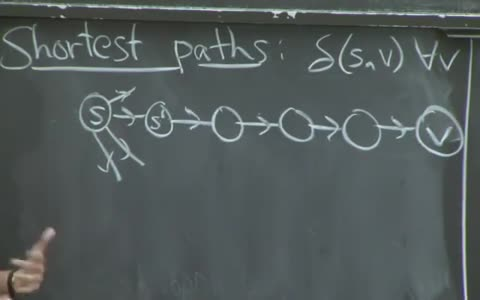 Shortest paths: δ(s,v) ∀v
s s' v